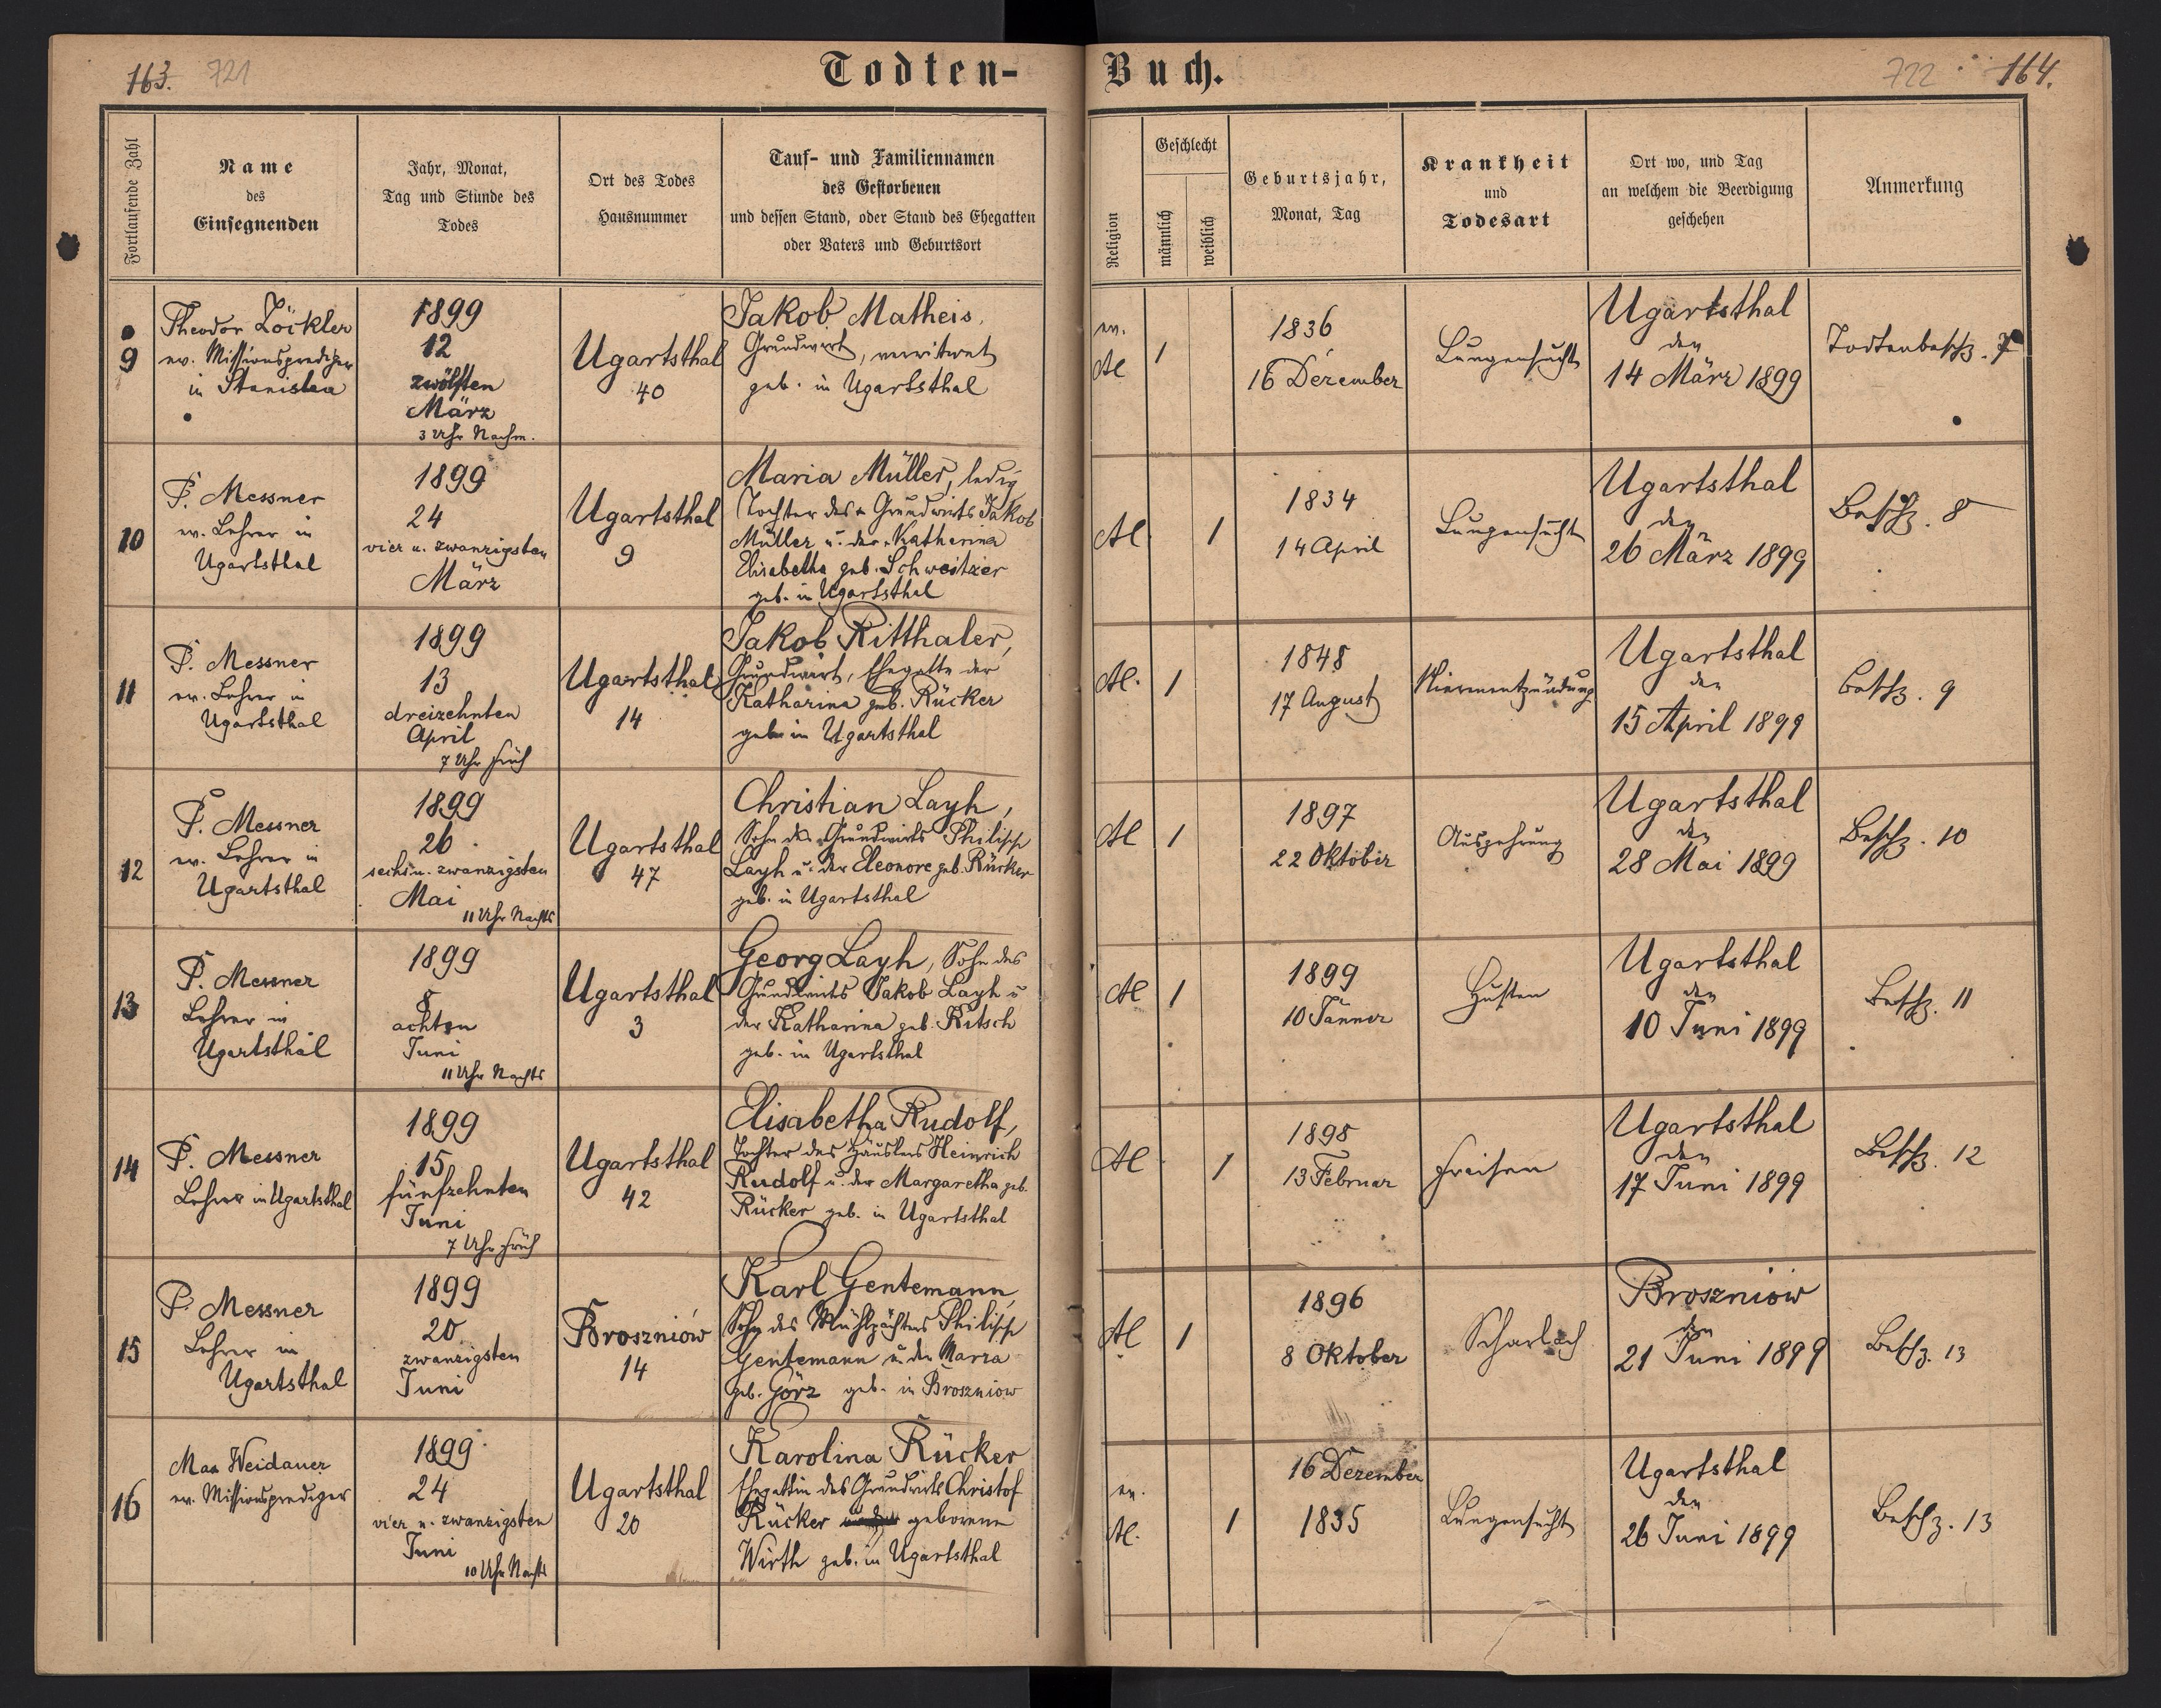 163. 721
Todten-
Fortlaufende Zahl
Name
des
Einsegnenden
Jahr, Monat,
Tag und Stunde des
Todes
Ort des Todes
Hausnummer
Tauf- und Familiennamen
des Gestorbenen
und dessen Stand, oder Stand des Ehegatten
oder Vaters und Geburtsort
9
Theodor Zöckler
ev. Missionsprediger
in Stanislau
1899
12
zwölften
März
3 Uhr Nachm.
Ugartsthal
40
Jakob Matheis,
Grundwirt, verwitwet
geb. in Ugartsthal
10
P. Messner
ev. Lehrer in
Ugartsthal
1899
24
vier u. zwanzigsten
März
Ugartsthal
9
Maria Müller, ledig
Tochter des + Grundwirts Jakob
Müller u. der + Katherina
Elisabetha geb. Schweitzer
geb. in Ugartsthal
11
P. Messner
ev. Lehrer in
Ugartsthal
1899
13
dreizehnten
April
7 Uhr früh
Ugartsthal
14
Jakob Ritthaler,
Grundwirt, Ehegatte der
Katharina geb. Rücker
geb. in Ugartsthal
12
P. Messner
ev. Lehrer in
Ugartsthal
1899
26
sechs u. zwanzigsten
Mai
11 Uhr Nachts
Ugartsthal
47
Christian Layh,
Sohn des Grundwirts Philipp
Layh u. der Eleonore geb. Rücker
geb. in Ugartsthal
13
P. Messner
Lehrer in
Ugartsthal
1899
8
achten
Juni
11 Uhr Nachts
Ugartsthal
3
Georg Layh, Sohn des
Grundwirts Jakob Layh u
der Katharina geb. Ritsch
geb. in Ugartsthal
14
P. Messner
Lehrer in Ugartsthal
1899
15
fünfzehnten
Juni
7 Uhr früh
Ugartsthal
42
Elisabetha Rudolf,
Tochter des Häuslers Heinrich
Rudolf u. der Margaretha geb.
Rücker geb. in Ugartsthal
15
P. Messner
Lehrer in
Ugartsthal
1899
20
zwanzigsten
Juni
Broszniów
14
Karl Gentemann,
Sohn des Mühlpächters Philipp
Gentemann u. der Maria
geb. Görz geb. in Broszniow
16
Max Weidauer
ev. Missionsprediger
1899
24
vier u. zwanzigsten
Juni
10 Uhr Nachts
Ugartsthal
20
Karolina Rücker
Ehegattin des Grundwirts Christof
Rücker geborene
Wirth geb. in Ugartsthal
Buch.
722 164.
Religion
Geschlecht
männlich
weiblich
Geburtsjahr,
Monat, Tag
Krankheit
und
Todesart
Ort wo, und Tag
an welchem die Beerdigung
geschehen
Anmerkung
ev.
AC
1
1836
16 Dezember
Lungensucht
Ugartsthal
den
14 März 1899
Todtenbesch. 7
AC
1
1834
14 April
Lungensucht
Ugartsthal
den
26 März 1899
Besch. 8
AC.
1
1848
17 August
Nierenentzündung
Ugartsthal
den
15 April 1899
Besch. 9
AC
1
1897
22 Oktober
Auszehrung
Ugartsthal
den
28 Mai 1899
Besch. 10
AC
1
1899
10 Jänner
Husten
Ugartsthal
den
10 Juni 1899
Besch. 11
AC
1
1898
13 Februar
Freisen
Ugartsthal
den
17 Juni 1899
Besch. 12
AC
1
1896
8 Oktober
Scharlach
Broszniow
den
21 Juni 1899
Besch. 13
ev.
AC.
1
16 Dezember
1835
Lungensucht
Ugartsthal
den
26 Juni 1899
Besch. 13